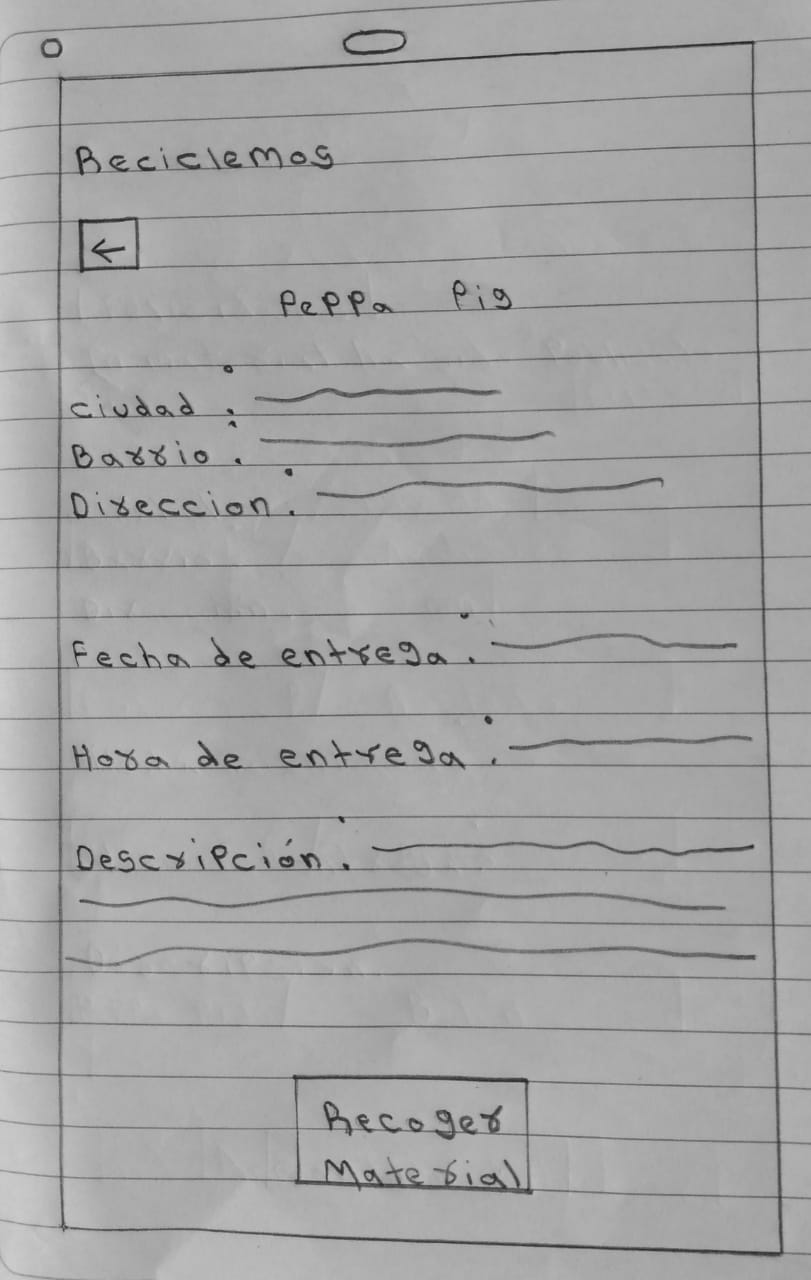 Reciclemos
←
Peppa Pig
Ciudad :
Barrio :
Direccion :
Fecha de entrega :
Hora de entrega :
Descripción :
Recoger
Material